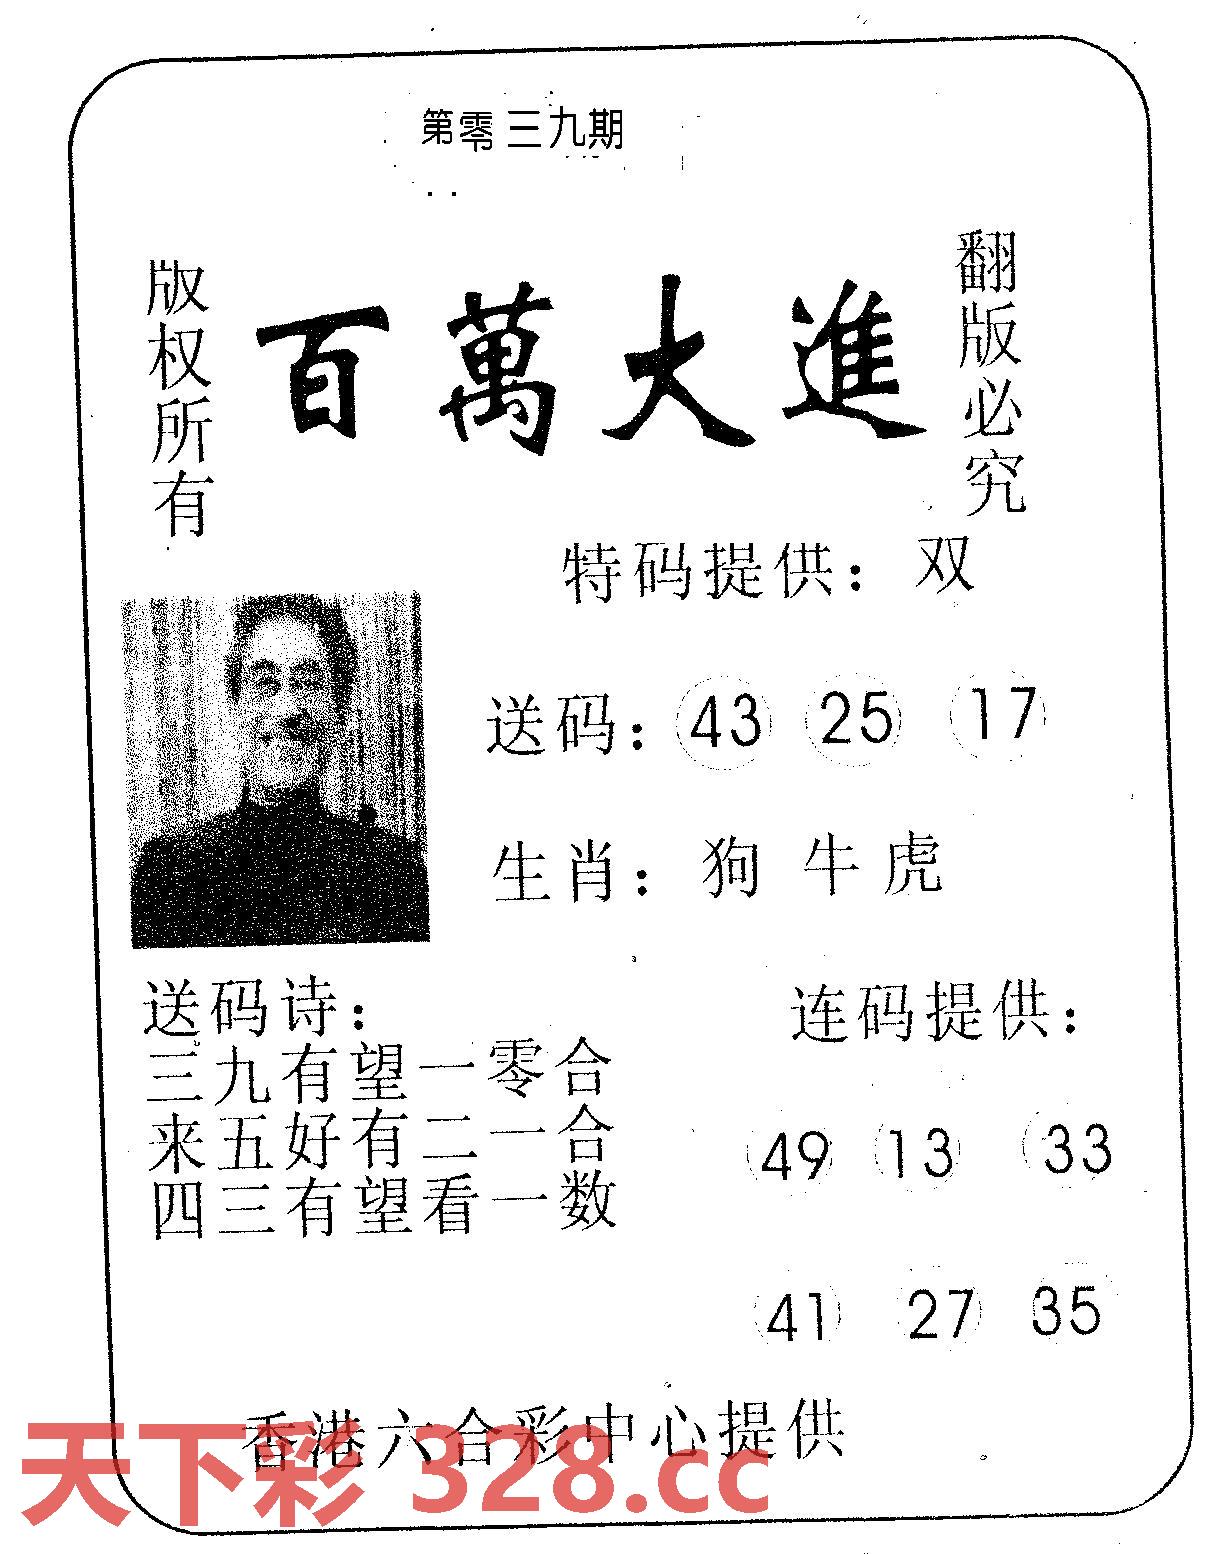 第零三九期
版权所有
百萬大進
翻版必究
特码提供：双
送码：43 25 17
生肖：狗 牛 虎
送码诗：
三九有望一零合
来五好有二一合
四三有望看一数
连码提供：
49 13 33
41 27 35
香港六合彩中心提供
天下彩 328.cc